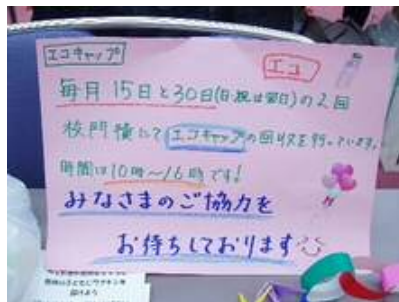 エコキャップ エコ
毎月15日と30日(日・祝は翌日)の2回
校門横にてエコキャップの回収を行っています。
時間は10時~16時です!
みなさまのご協力を
お待ちしております